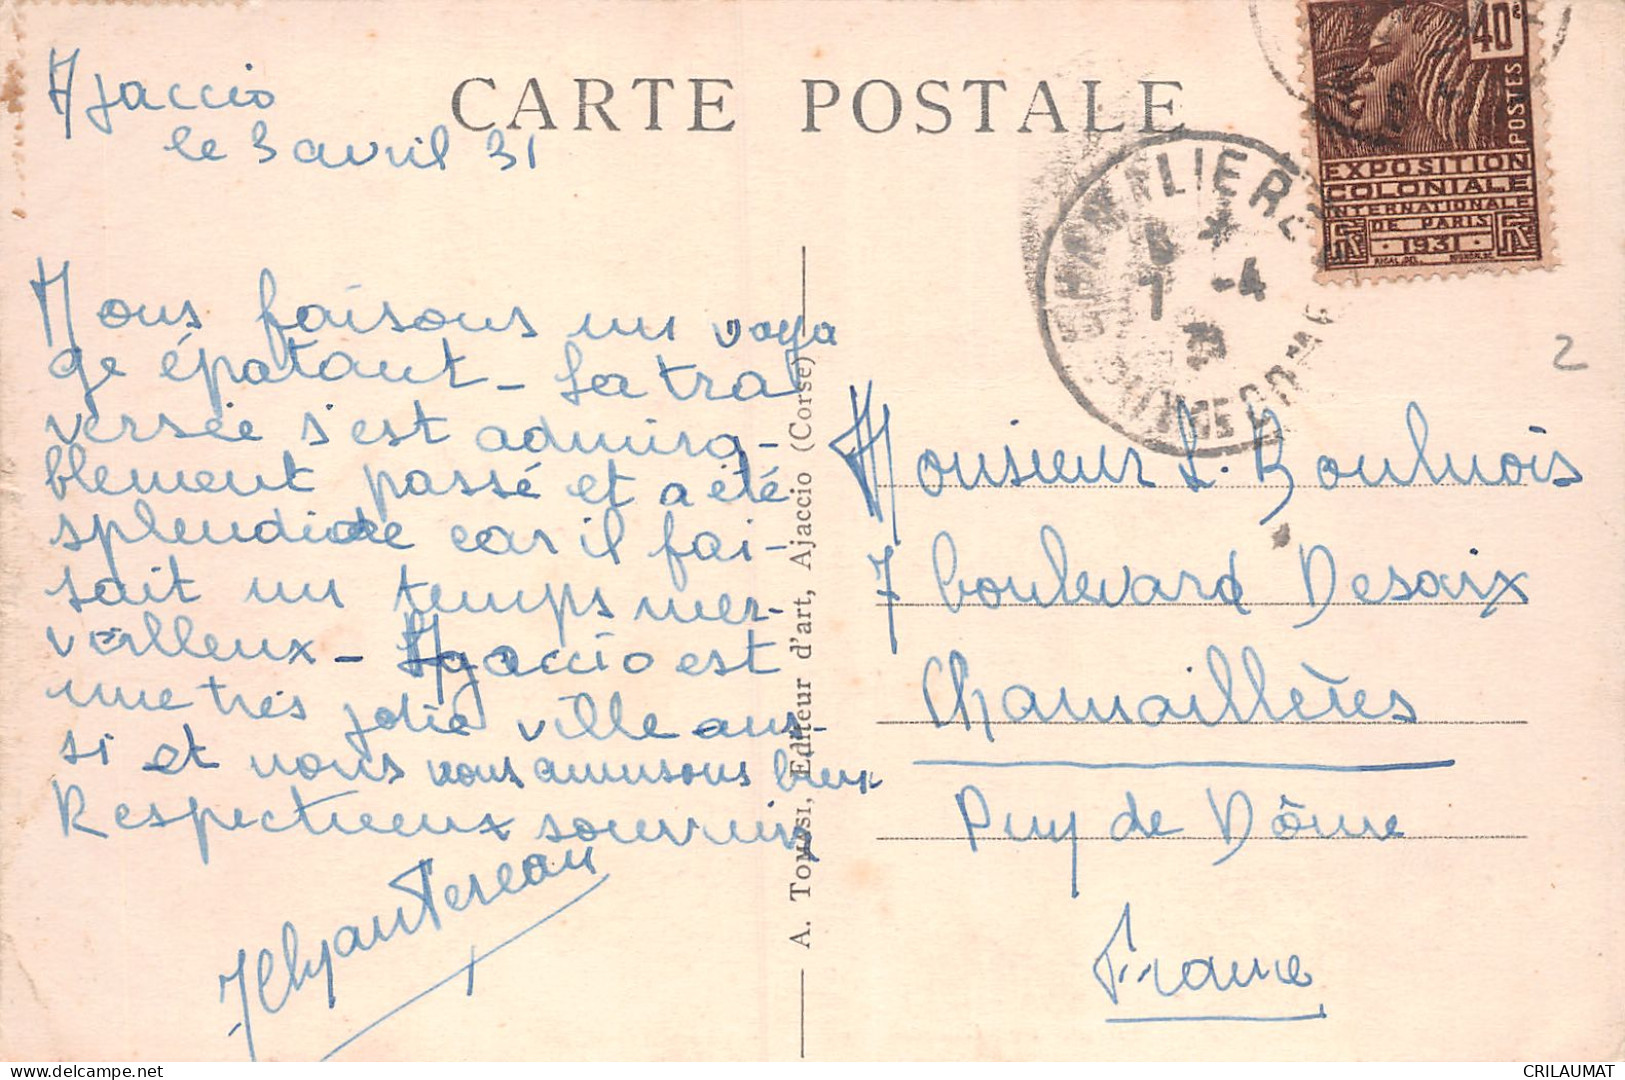 CARTE POSTALE
Ajaccio
le 3 avril 31
Nous faisons un voya
ge épatant - La tra
versée s'est admira-
blement passé et a été
splendide car il fai-
sait un temps mer-
veilleux - Ajaccio est
une très jolie ville aus-
si et nous nous amusons bien
Respectueux souvenir
A. Tomasi, Editeur d'art, Ajaccio (Corse)
40c
POSTES
EXPOSITION
COLONIALE
INTERNATIONALE
DE PARIS
RF 1931 RF
CHAMALIERES
7 -4
31
PUY-DE-DOME
2
Monsieur L. Boulnois
7 boulevard Desaix
Chamaillères
Puy de Dôme
France
delcampe.net
CRILAUMAT